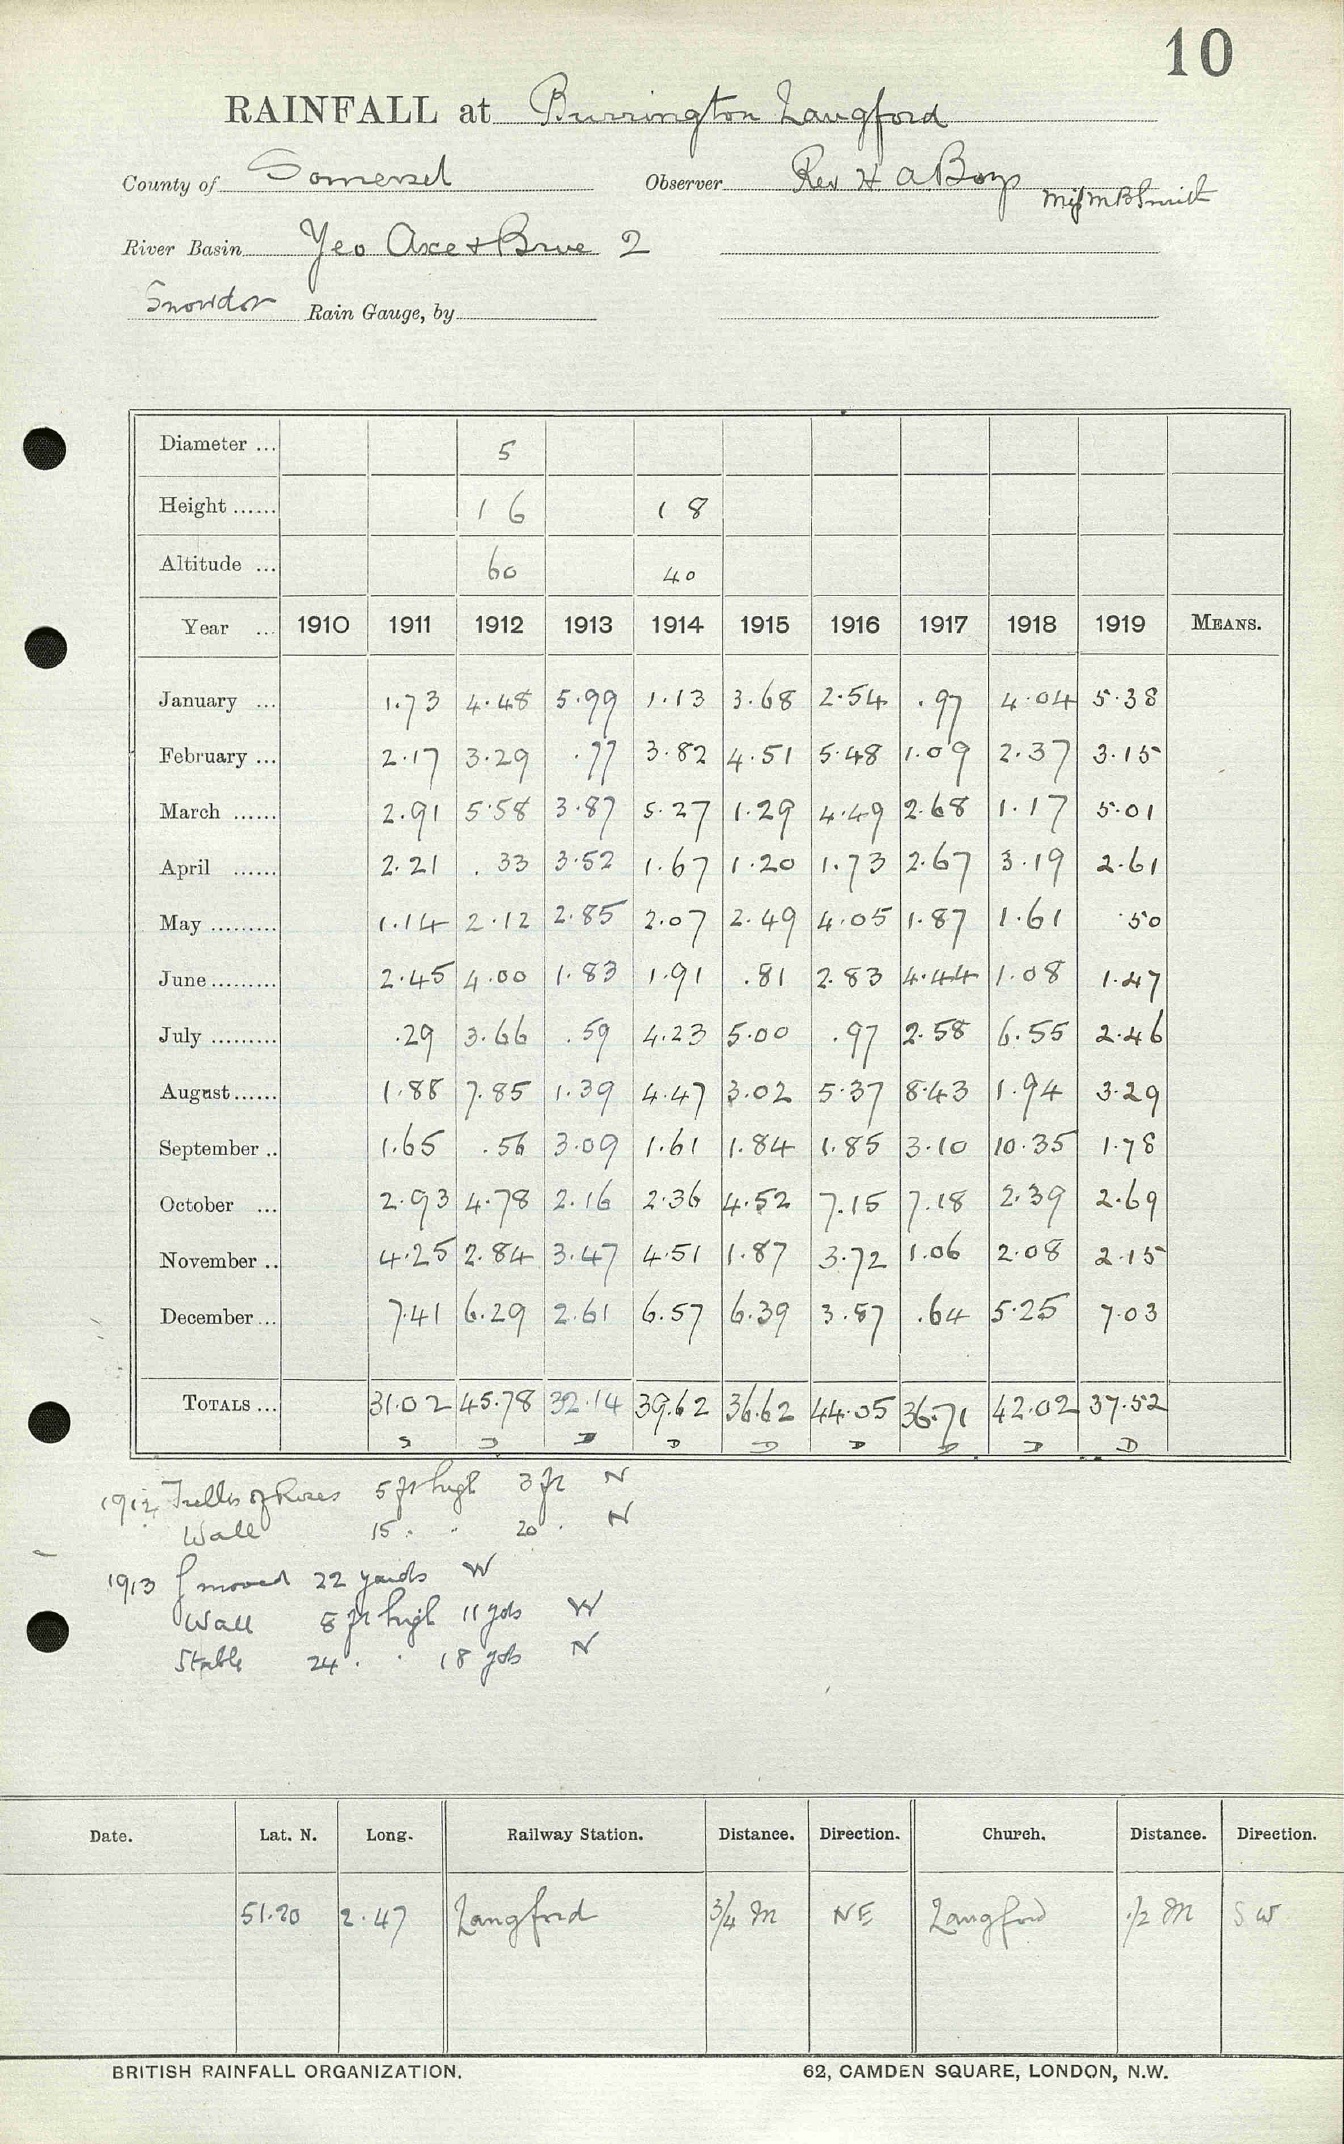 10
RAINFALL at Burrington Langford
County of Somerset Observer Rev H A Boys Miss M B Smith
River Basin Yeo Axe & Brue 2
Snowdon Rain Gauge, by
Diameter ... 5
Height ...... 1 6 1 8
Altitude ... 60 40
Year ... 1910 1911 1912 1913 1914 1915 1916 1917 1918 1919 MEANS.
January ... 1.73 4.48 5.99 1.13 3.68 2.54 .97 4.04 5.38
February ... 2.17 3.29 .77 3.82 4.51 5.48 1.09 2.37 3.15
March ...... 2.91 5.58 3.87 5.27 1.29 4.49 2.68 1.17 5.01
April ...... 2.21 .33 3.52 1.67 1.20 1.73 2.67 3.19 2.61
May ......... 1.14 2.12 2.85 2.07 2.49 4.05 1.87 1.61 .50
June ......... 2.45 4.00 1.83 1.91 .81 2.83 4.44 1.08 1.47
July ......... .29 3.66 .59 4.23 5.00 .97 2.58 6.55 2.46
August ...... 1.88 7.85 1.39 4.47 3.02 5.37 8.43 1.94 3.29
September .. 1.65 .56 3.09 1.61 1.84 1.85 3.10 10.35 1.78
October ... 2.93 4.78 2.16 2.36 4.52 7.15 7.18 2.39 2.69
November .. 4.25 2.84 3.47 4.51 1.87 3.72 1.06 2.08 2.15
December ... 7.41 6.29 2.61 6.57 6.39 3.87 .64 5.25 7.03
TOTALS ... 31.02 45.78 32.14 39.62 36.62 44.05 36.71 42.02 37.52
S D D D D D D D D
1912 Trellis of Roses 5 ft high 3 ft N
Wall 15 . . 20 . N
1913 moved 22 yards W
Wall 8 ft high 11 yds W
Stable 24 . . 18 yds N
Date. Lat. N. Long. Railway Station. Distance. Direction. Church. Distance. Direction.
51.20 2.47 Langford 3/4 m NE Langford 1/2 m SW
BRITISH RAINFALL ORGANIZATION. 62, CAMDEN SQUARE, LONDON, N.W.